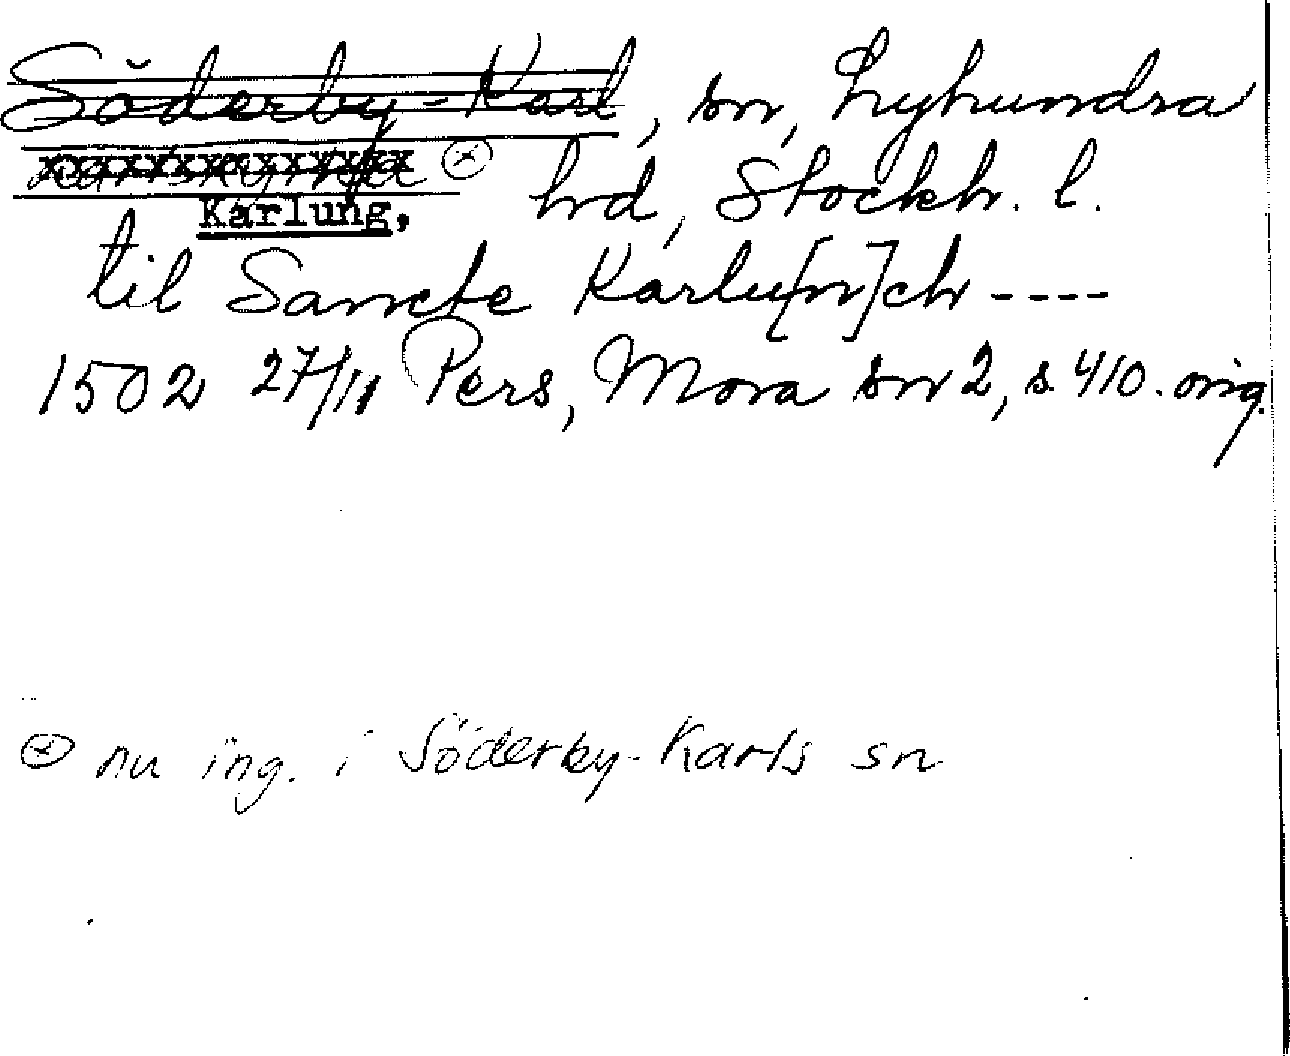 Söderby-Karl, sn, Lyhundra
⊗ hd, Stockh. l.
Karlung,
til Sancte Karlu[n]ch ----
1502 27/11 Pers, Mora sn 2, s. 410. orig.
⊗ nu ing. i Söderby-Karls sn